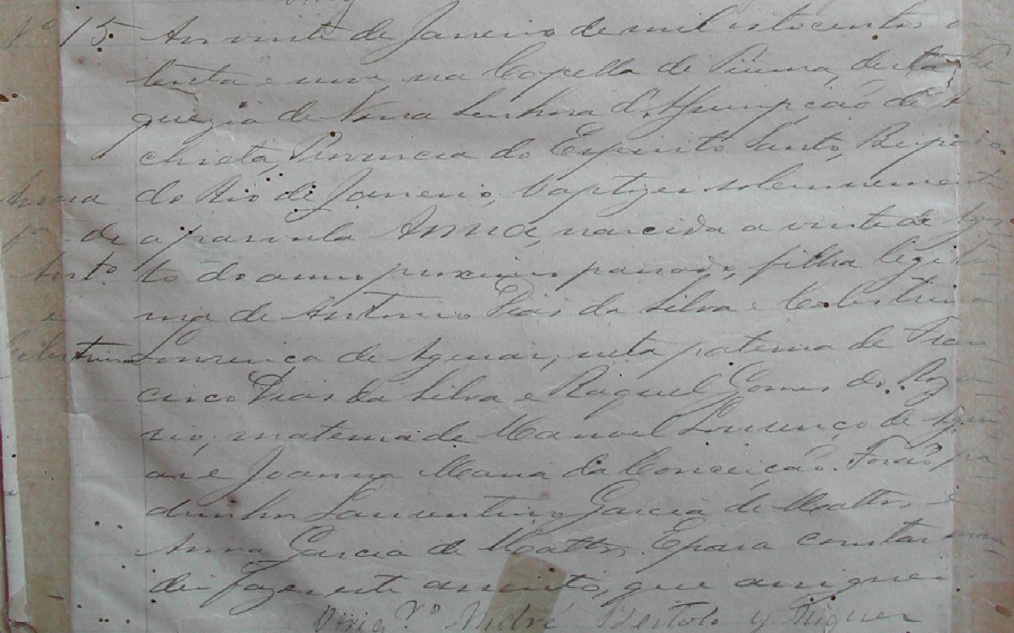 Nº 15 Aos vinte de Janeiro de mil oitocentos e
tenta e um na Capella de Piuma, desta Fre
guezia de Nossa Senhora d'Assumpção de
chieta, Provincia do Espirito Santo, Bispado
Anna do Rio de Janeiro, baptizei solemnemente
fª de a parvula Anna, nascida a vinte de Agos
Antº to do anno proximo passado, filha legiti
e ma de Antonio Dias da Silva e Celestrina
Celestrina Lourença de Aguiar; neta paterna de Fran
cisco Dias da Silva e Raquel Gomes do Roza
rio; materna de Manoel Lourenço de Agui
ar e Joanna Maria da Conceição. Forão pa
drinhos Laurentino Garcia de Mattos e
Anna Garcia de Mattos. E para constar
dei fazer este assento, que assignei
Vigrº André